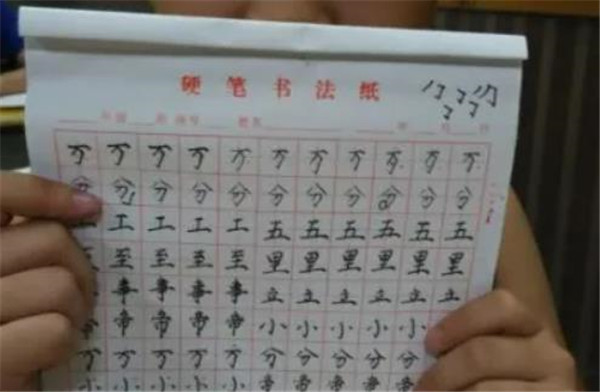 硬笔书法纸
万万万万万万万万万万万
分分分分分分分分分分分
工工工工五五五五五五
至至至至里里里里里里
事事事事立立立立立立
帝帝帝帝帝小小小小小
万万万万万分分分分分
小小小小小帝帝帝帝